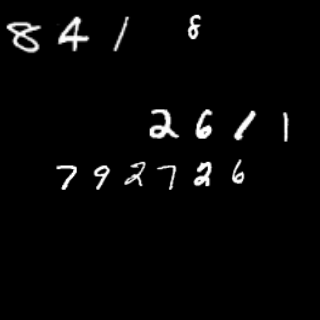 841 8
2611
792726